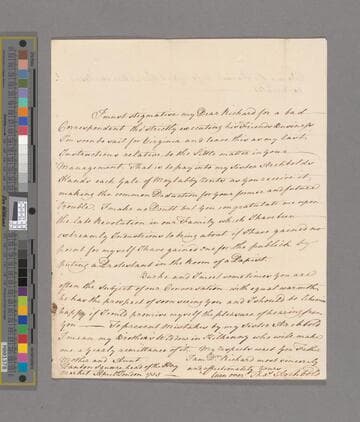 I must stigmatise my Dear Richard for a bad
Correspondent tho Strictly executing his Friends Business
I'm soon bound for Virginia and leave this as my last
Instructions relative to the little matter in your
Management. That is to pay into my Sister Archbolds
Hands each Gale of May by Rents as you receive it,
making the common Deduction for your former and future
Trouble. I make no Doubt but you congratulate me upon
the late Revolution in our Family which I have been
extreamly Industrious to bring about if I have gained no
point for myself I have gained one for the publick by
puting a Protestant in the Room of a Papist.
Burke and I meet sometimes you are
often the Subject of our Conversation with equal warmth
he has the prospect of soon seeing you and I should be
happy if I could promise myself the pleasure of hearing from
you — To prevent mistakes by my Sister Archbold
I mean my Brothers Widow in Kilkenny who will make
me a yearly remittance of it. My respects wait you Father
Mother and Aunt
I am Dr Richard most sincerely
and affectionately yours
Square head of the Hay
Market London
Archbold